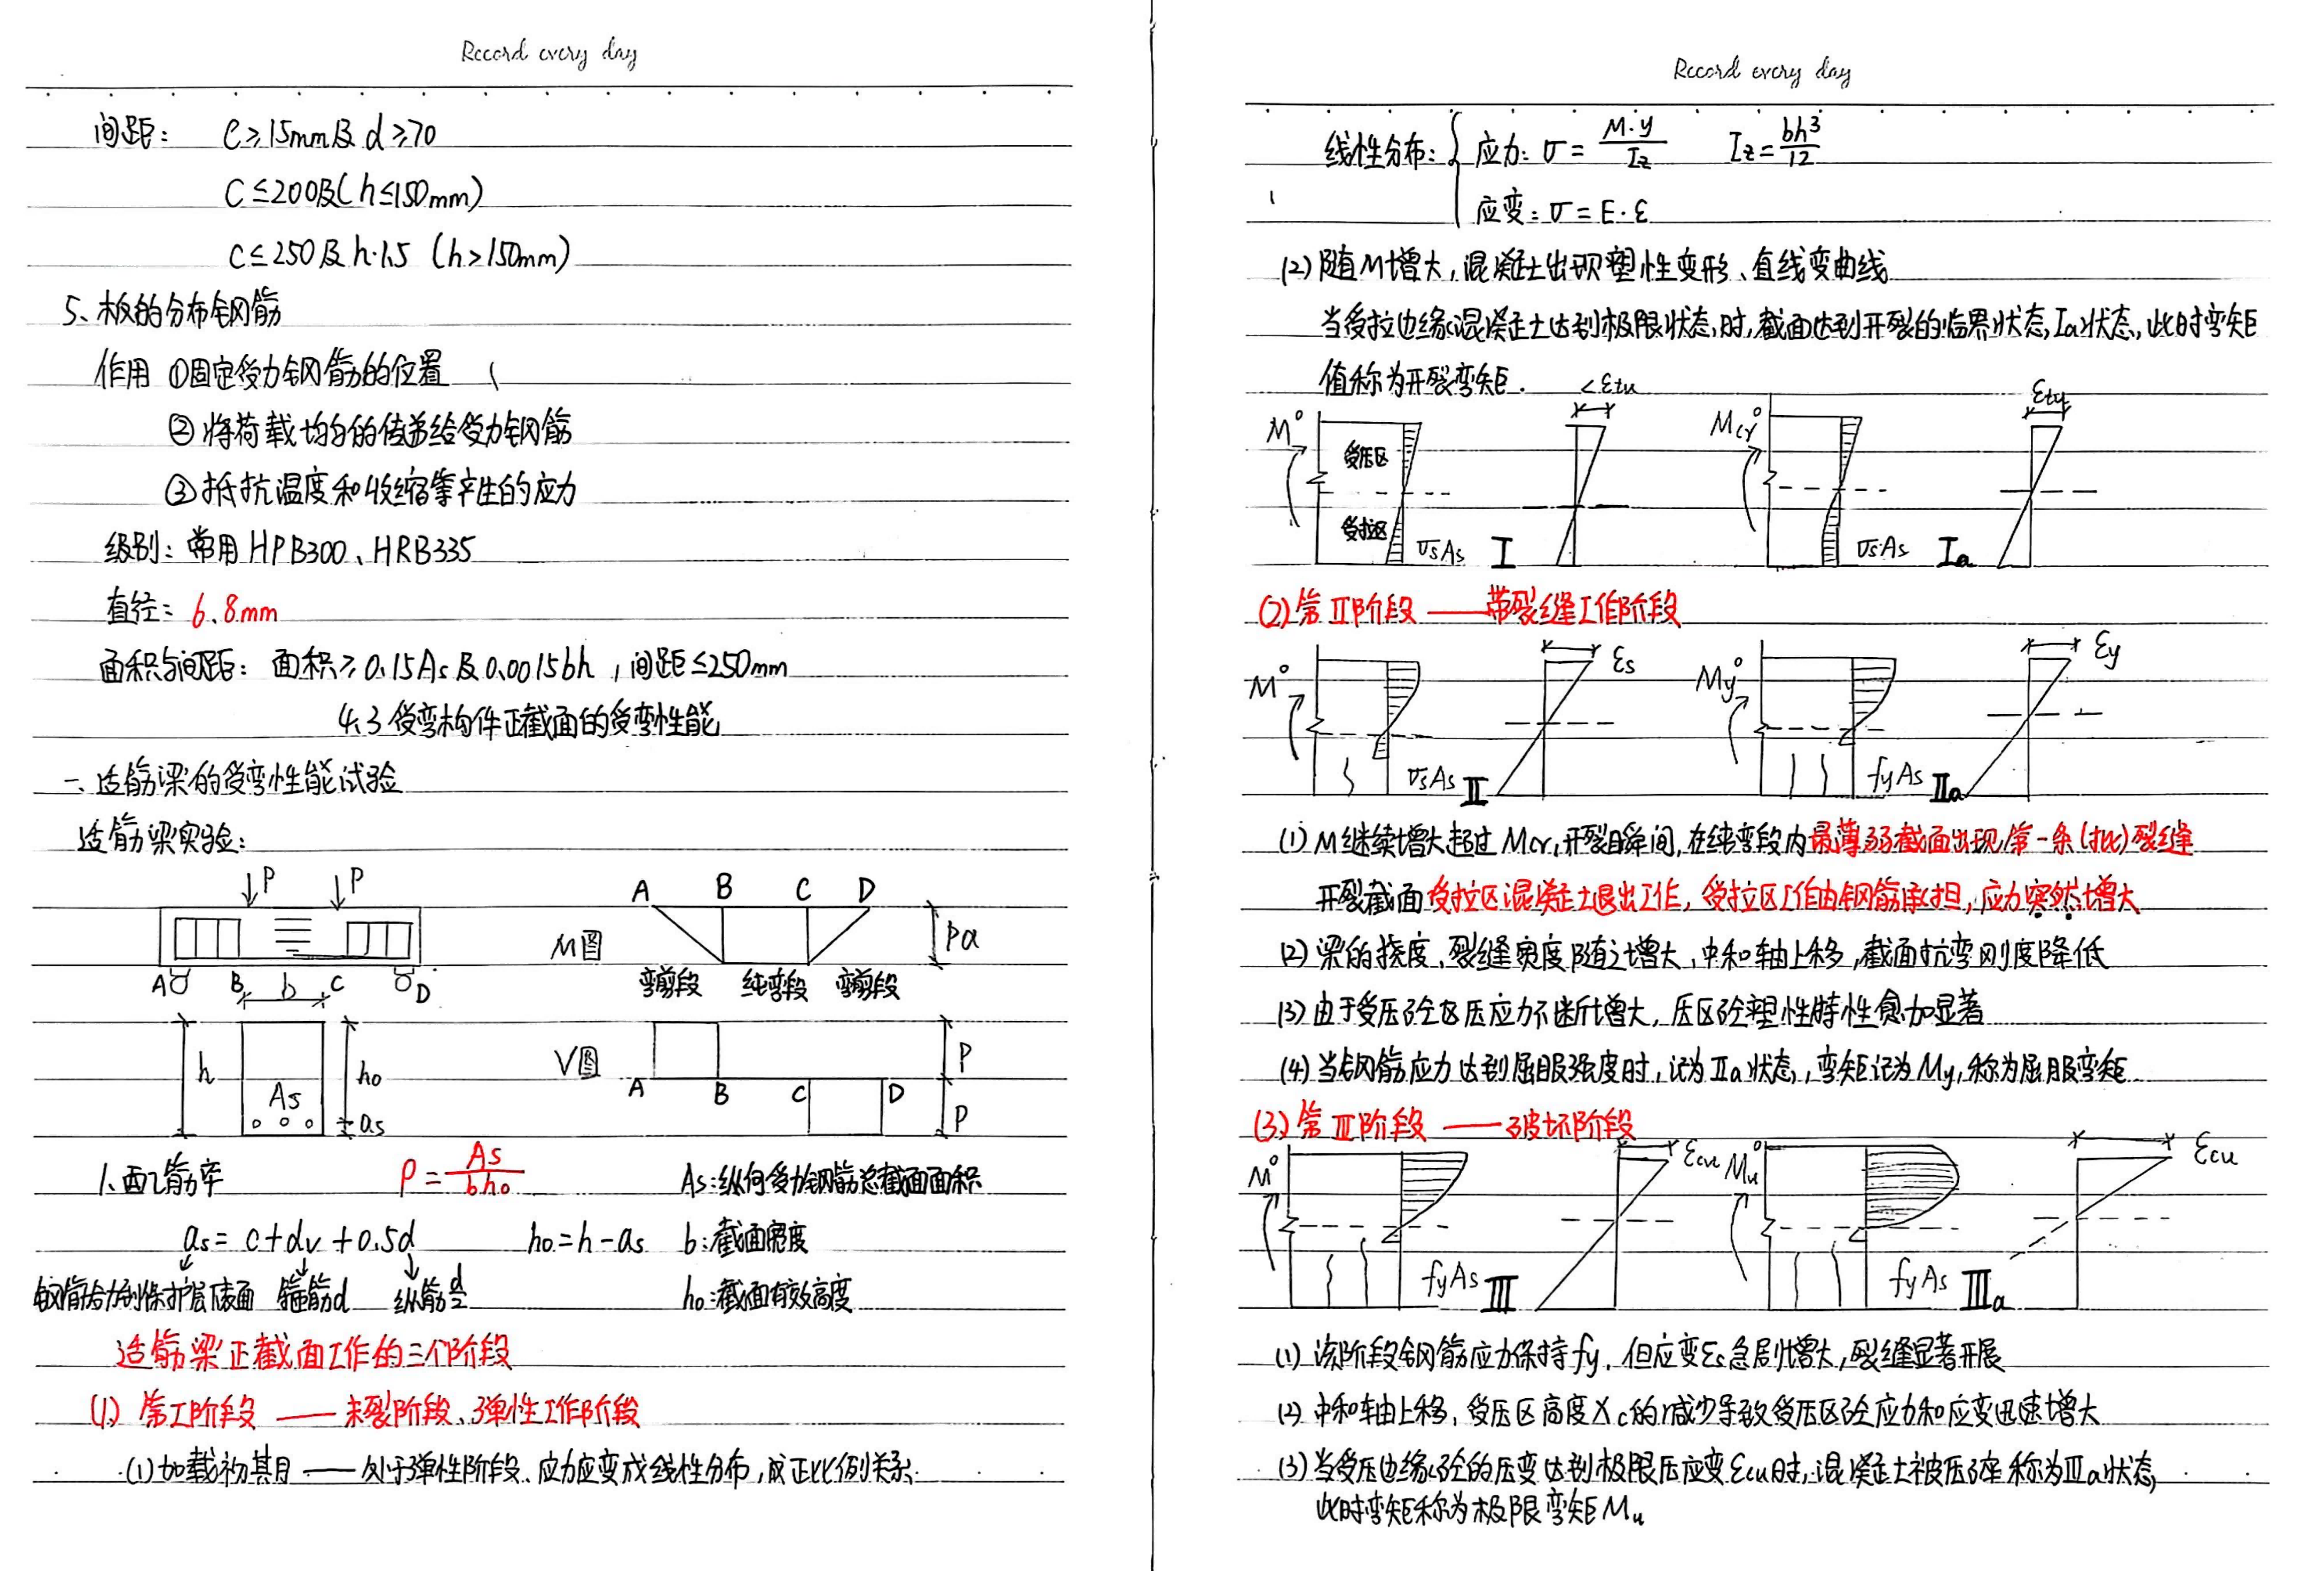 Record every day
间距: C≥15mm及d≥70
C≤200及(h≤150mm)
C≤250及h·1.5 (h>150mm)
5、板的分布钢筋
作用 ①固定受力钢筋的位置
②将荷载均匀的传递给受力钢筋
③抵抗温度和收缩等产生的应力
级别:常用HPB300、HRB335
直径:6、8mm
面积与间距:面积≥0.15As及0.0015bh,间距≤250mm
4.3受弯构件正截面的受弯性能
一、适筋梁的受弯性能试验
适筋梁实验:
P P
A B b C D
M图 A B C D Pa
弯剪段 纯弯段 弯剪段
h As h₀ as
V图 A B C D P P
1、配筋率 ρ=As/bh₀ As:纵向受力钢筋总截面面积
as=c+dv+0.5d h₀=h-as b:截面宽度
保护层 箍筋d 纵筋d/2 h₀:截面有效高度
适筋梁正截面工作的三个阶段
(1) 第Ⅰ阶段 —— 未裂阶段、弹性工作阶段
(1)加载初期 —— 处于弹性阶段、应力应变成线性分布,成正比例关系
Record every day
线性分布: 应力:σ=M·y/Iz Iz=bh³/12
应变:σ=E·ε
(2)随M增大,混凝土出现塑性变形、直线变曲线
当受拉边缘混凝土达到极限状态时,截面达到开裂的临界状态,Ⅰa状态,此时弯矩
值称为开裂弯矩.
M⁰ 受压区 受拉区 σsAs Ⅰ <εtu Mcr⁰ σsAs Ⅰa εtu
(2)第Ⅱ阶段 —— 带裂缝工作阶段
M⁰ σsAs Ⅱ εs My⁰ fyAs Ⅱa εy
(1)M继续增大超过Mcr,开裂瞬间,在纯弯段内最薄弱截面出现第一条(批)裂缝
开裂截面受拉区混凝土退出工作,受拉区工作由钢筋承担,应力突然增大
(2)梁的挠度、裂缝宽度随之增大,中和轴上移,截面抗弯刚度降低
(3)由于受压砼区压应力不断增大,压区砼塑性特性愈加显著
(4)当钢筋应力达到屈服强度时,记为Ⅱa状态,弯矩记为My,称为屈服弯矩
(3)第Ⅲ阶段 —— 破坏阶段
M⁰ fyAs Ⅲ εcu Mu⁰ fyAs Ⅲa εcu
(1)该阶段钢筋应力保持fy,但应变εs急剧增大,裂缝显著开展
(2)中和轴上移,受压区高度Xc的减少导致受压区砼应力和应变迅速增大
(3)当受压边缘砼的压变达到极限压应变εcu时,混凝土被压碎称为Ⅲa状态,
此时弯矩称为极限弯矩Mu